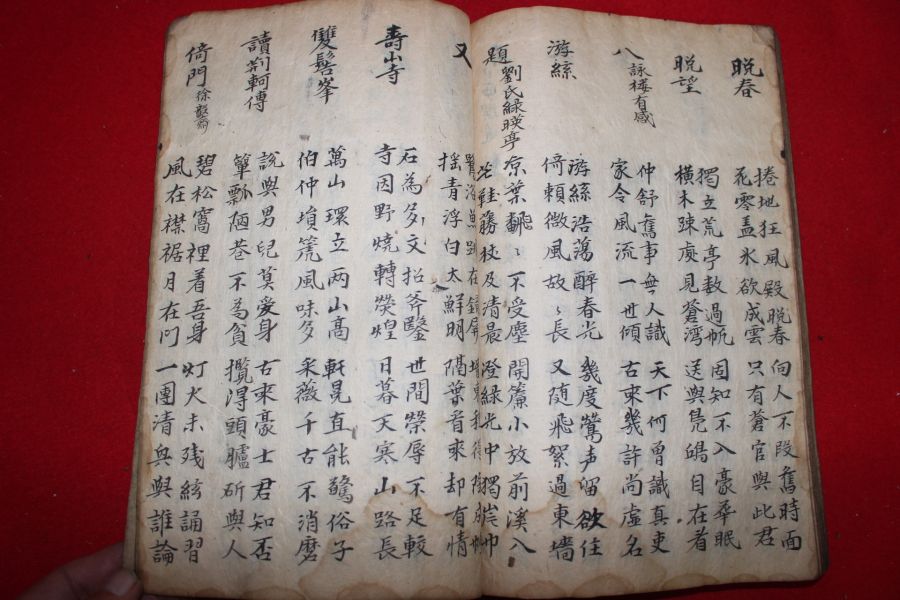 晩春
捲地狂風殿晩春 向人不改舊時面
花零盖水欲成雲 只有蒼官與此君
晩望
獨立荒亭数過帆 固知不入豪華眼
横木疎處見蒼湾 送與鳧鴎自在看
八詠楼有感
仲舒舊事無人識 天下何曽識真吏
家令風流一世傾 古來幾許尚虚名
游絲
游絲浩蕩醉春光 幾度鶯声留欲住
倚頼微風故〻長 又随飛絮過東墙
題劉氏緑暎亭
凉葉翻〻不受塵 開簾小放前溪入
芒鞋藤杖及清晨 澄緑光中獨岸巾
又
揺青浮白太鮮明 隔葉看來却有情
壽山寺
石為多文招斧鑿 世間榮辱不足較
寺因野燒轉熒煌 日暮天寒山路長
雙髻峯
萬山環立两山高 軒冕直能驚俗子
伯仲塤箎風味多 采薇千古不消磨
讀荊軻傳
說與男兒莫愛身 古來豪士君知否
簞瓢陋巷不為貧 攬得頭臚斫與人
倚門
碧松窩裡着吾身 灯火未残絃誦習
風在襟裾月在門 一團清與與誰論